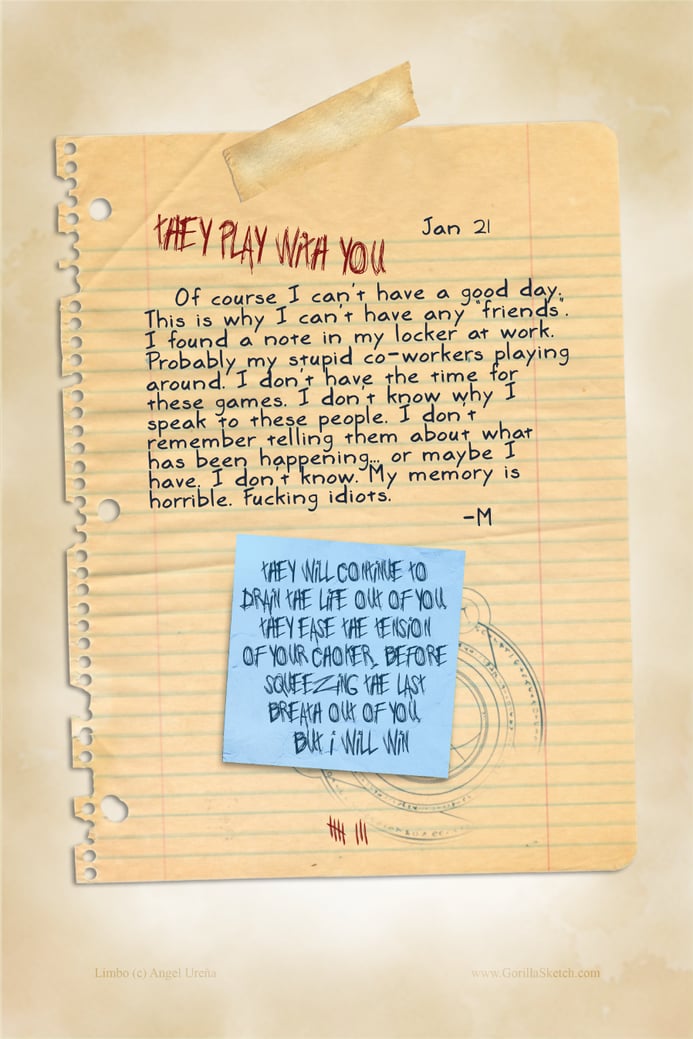 THEY PLAY WITH YOU
Jan 21
Of course I can't have a good day.
This is why I can't have any "friends".
I found a note in my locker at work.
Probably my stupid co-workers playing
around. I don't have the time for
these games. I don't know why I
speak to these people. I don't
remember telling them about what
has been happening... or maybe I
have. I don't know. My memory is
horrible. Fucking idiots.
-M
THEY WiLL CONTiNUE TO
DRAiN THE LiFE OUT OF YOU
THEY EASE THE TENSiON
OF YOUR CHOKER, BEFORE
SQUEEZiNG THE LAST
BREATH OUT OF YOU
BUT i WiLL WiN
Limbo (c) Angel Ureña
www.GorillaSketch.com